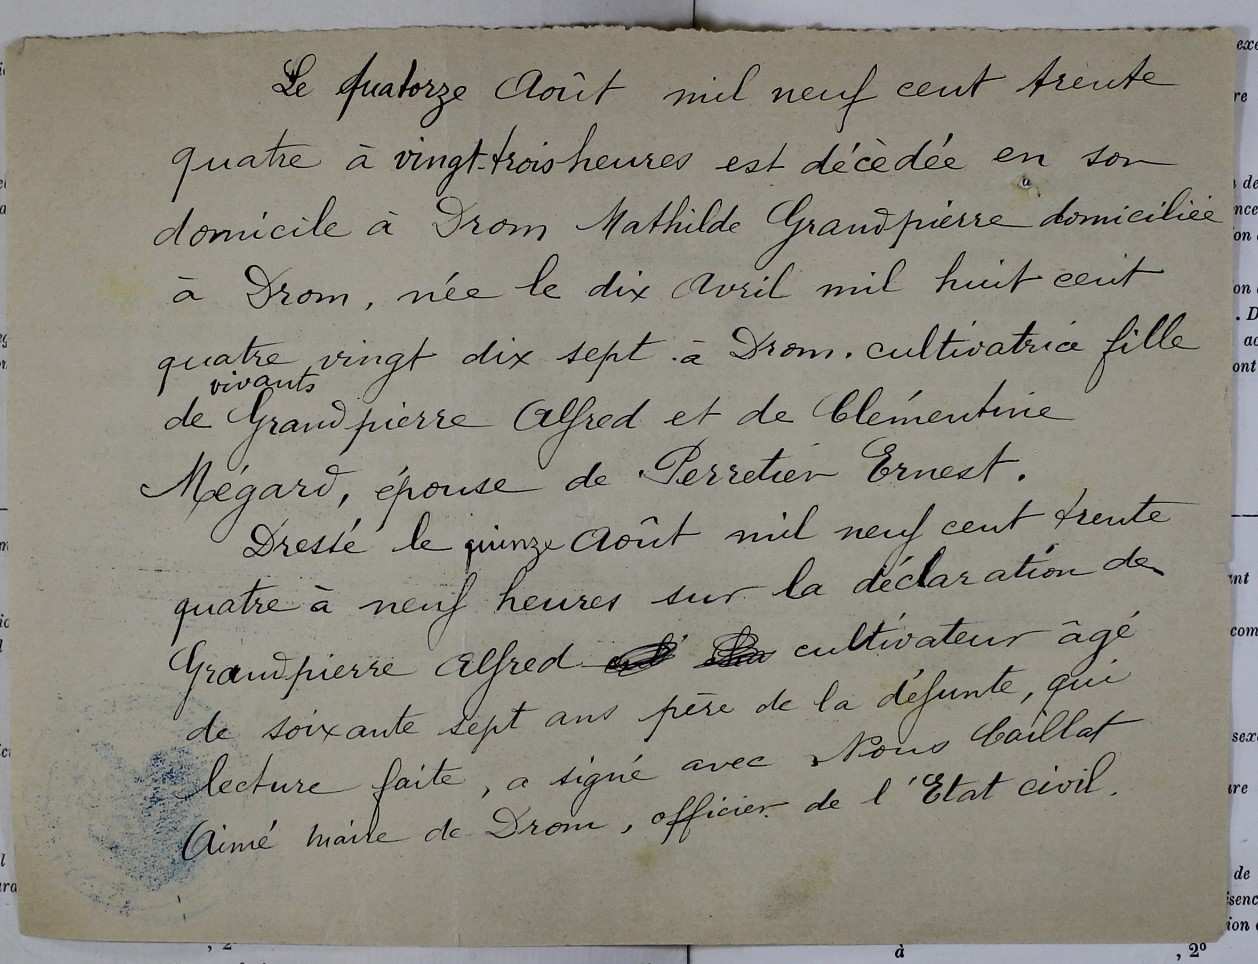 Le quatorze Août mil neuf cent trente
quatre à vingt-trois heures est décèdée en son
domicile à Drom Mathilde Grandpierre domiciliée
à Drom, née le dix Avril mil huit cent
quatre vingt dix sept à Drom. cultivatrice fille
vivants
de Grandpierre Alfred et de Clémentine
Mégard, épouse de Perretier Ernest.
Dressé le quinze Août mil neuf cent trente
quatre à neuf heures sur la déclaration de
Grandpierre Alfred cultivateur âgé
de soixante sept ans père de la défunte, qui
lecture faite, a signé avec Nous Caillat
Aimé maire de Drom, officier de l'Etat civil.